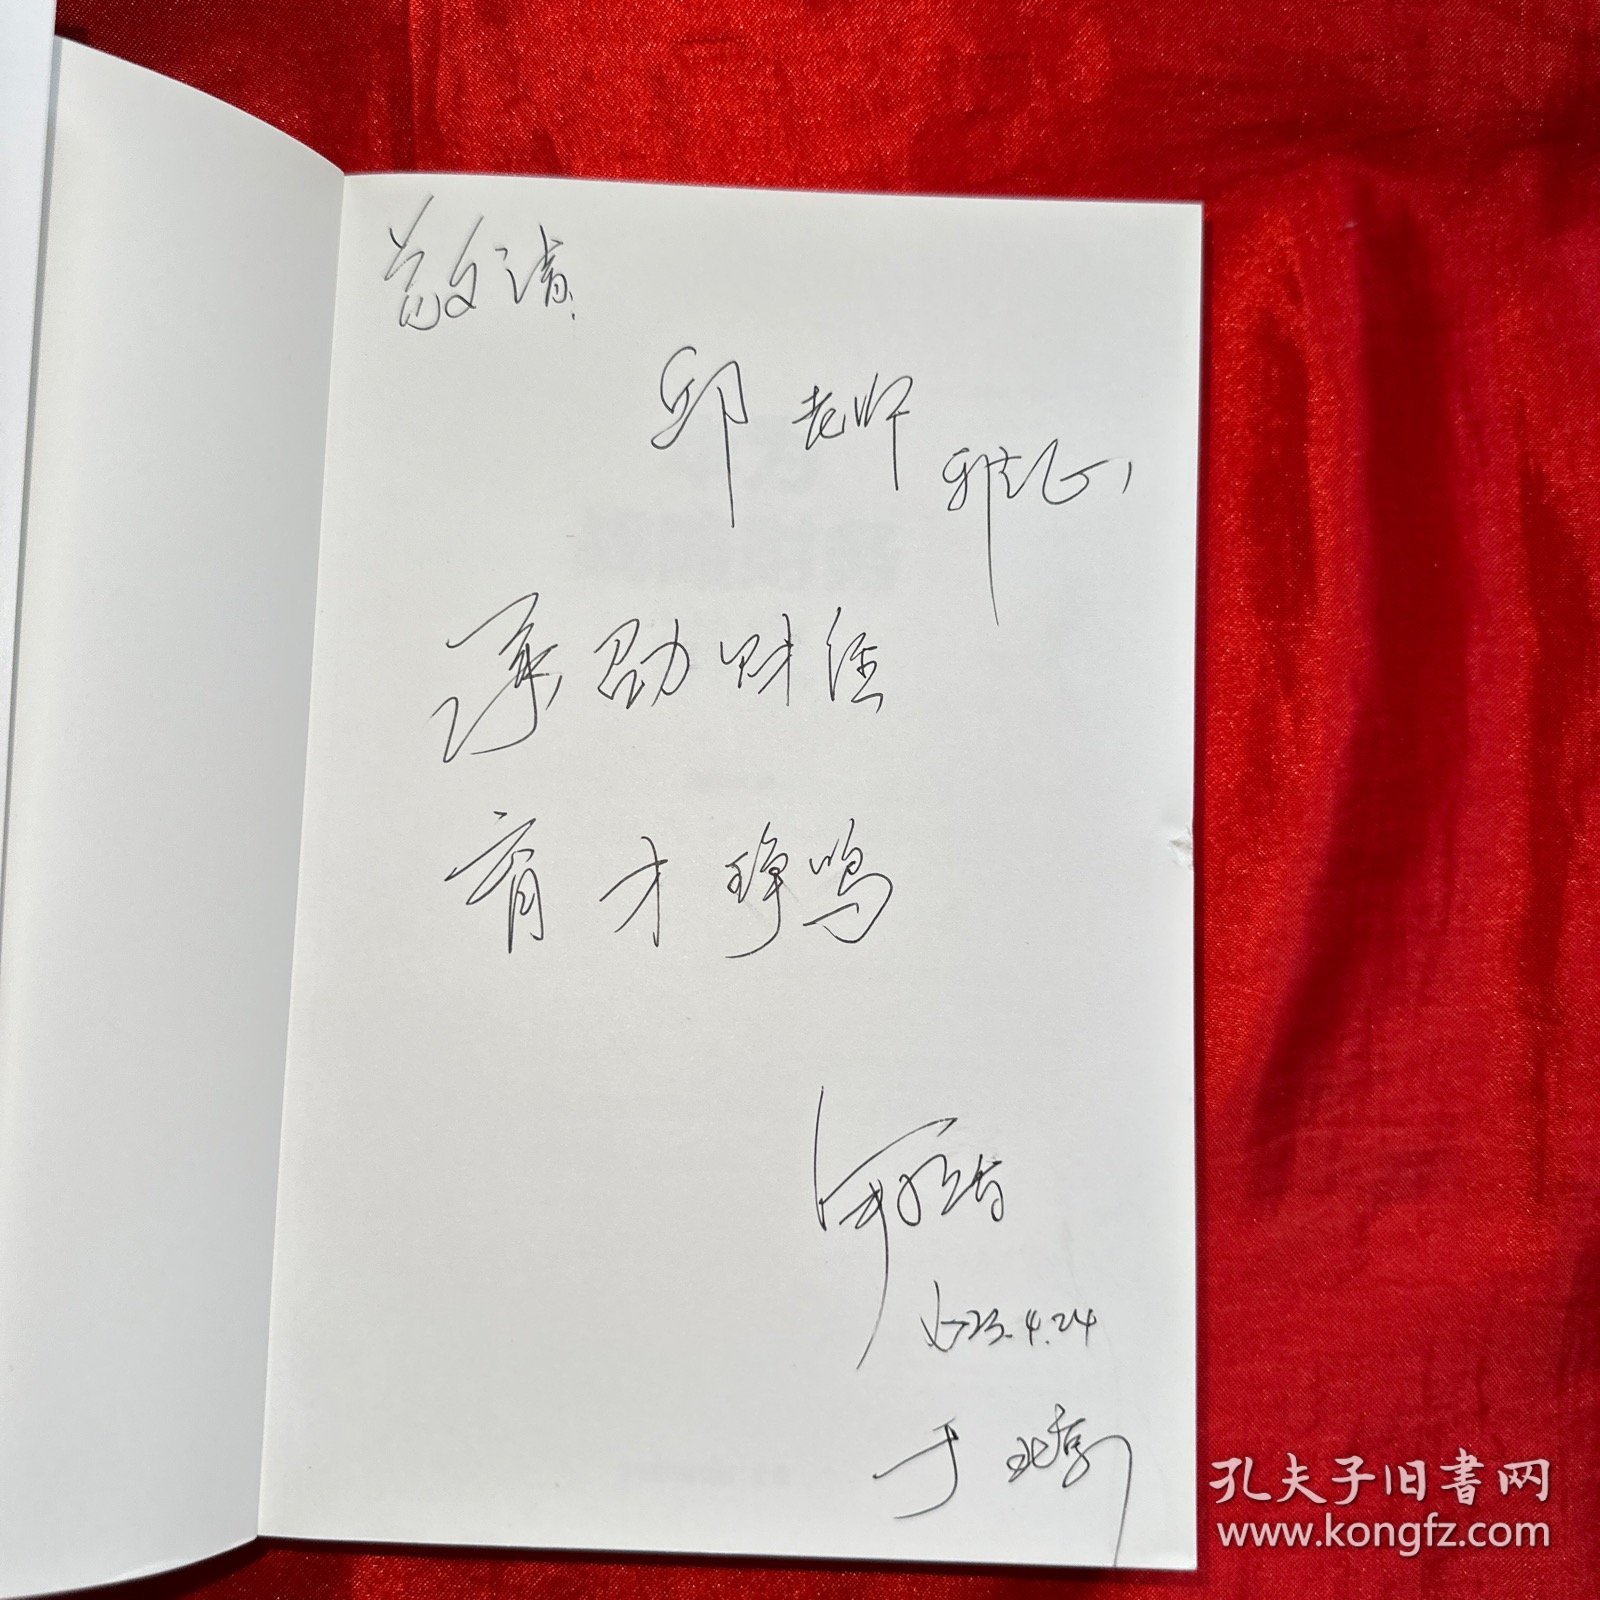 敬请
邱老师
雅正
深勋财经
育才铮鸣
2023.4.24
于北京
孔夫子旧书网
www.kongfz.com